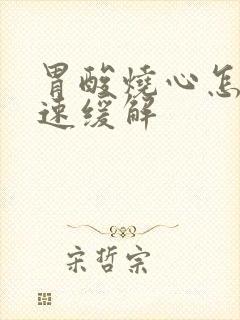 胃酸燒心怎
速缓解
宋哲宗